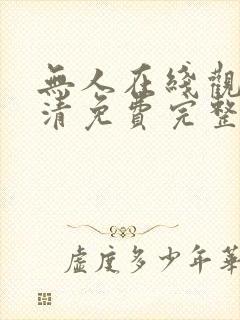 無人在綫觀
清免費完整
虛度多少年華